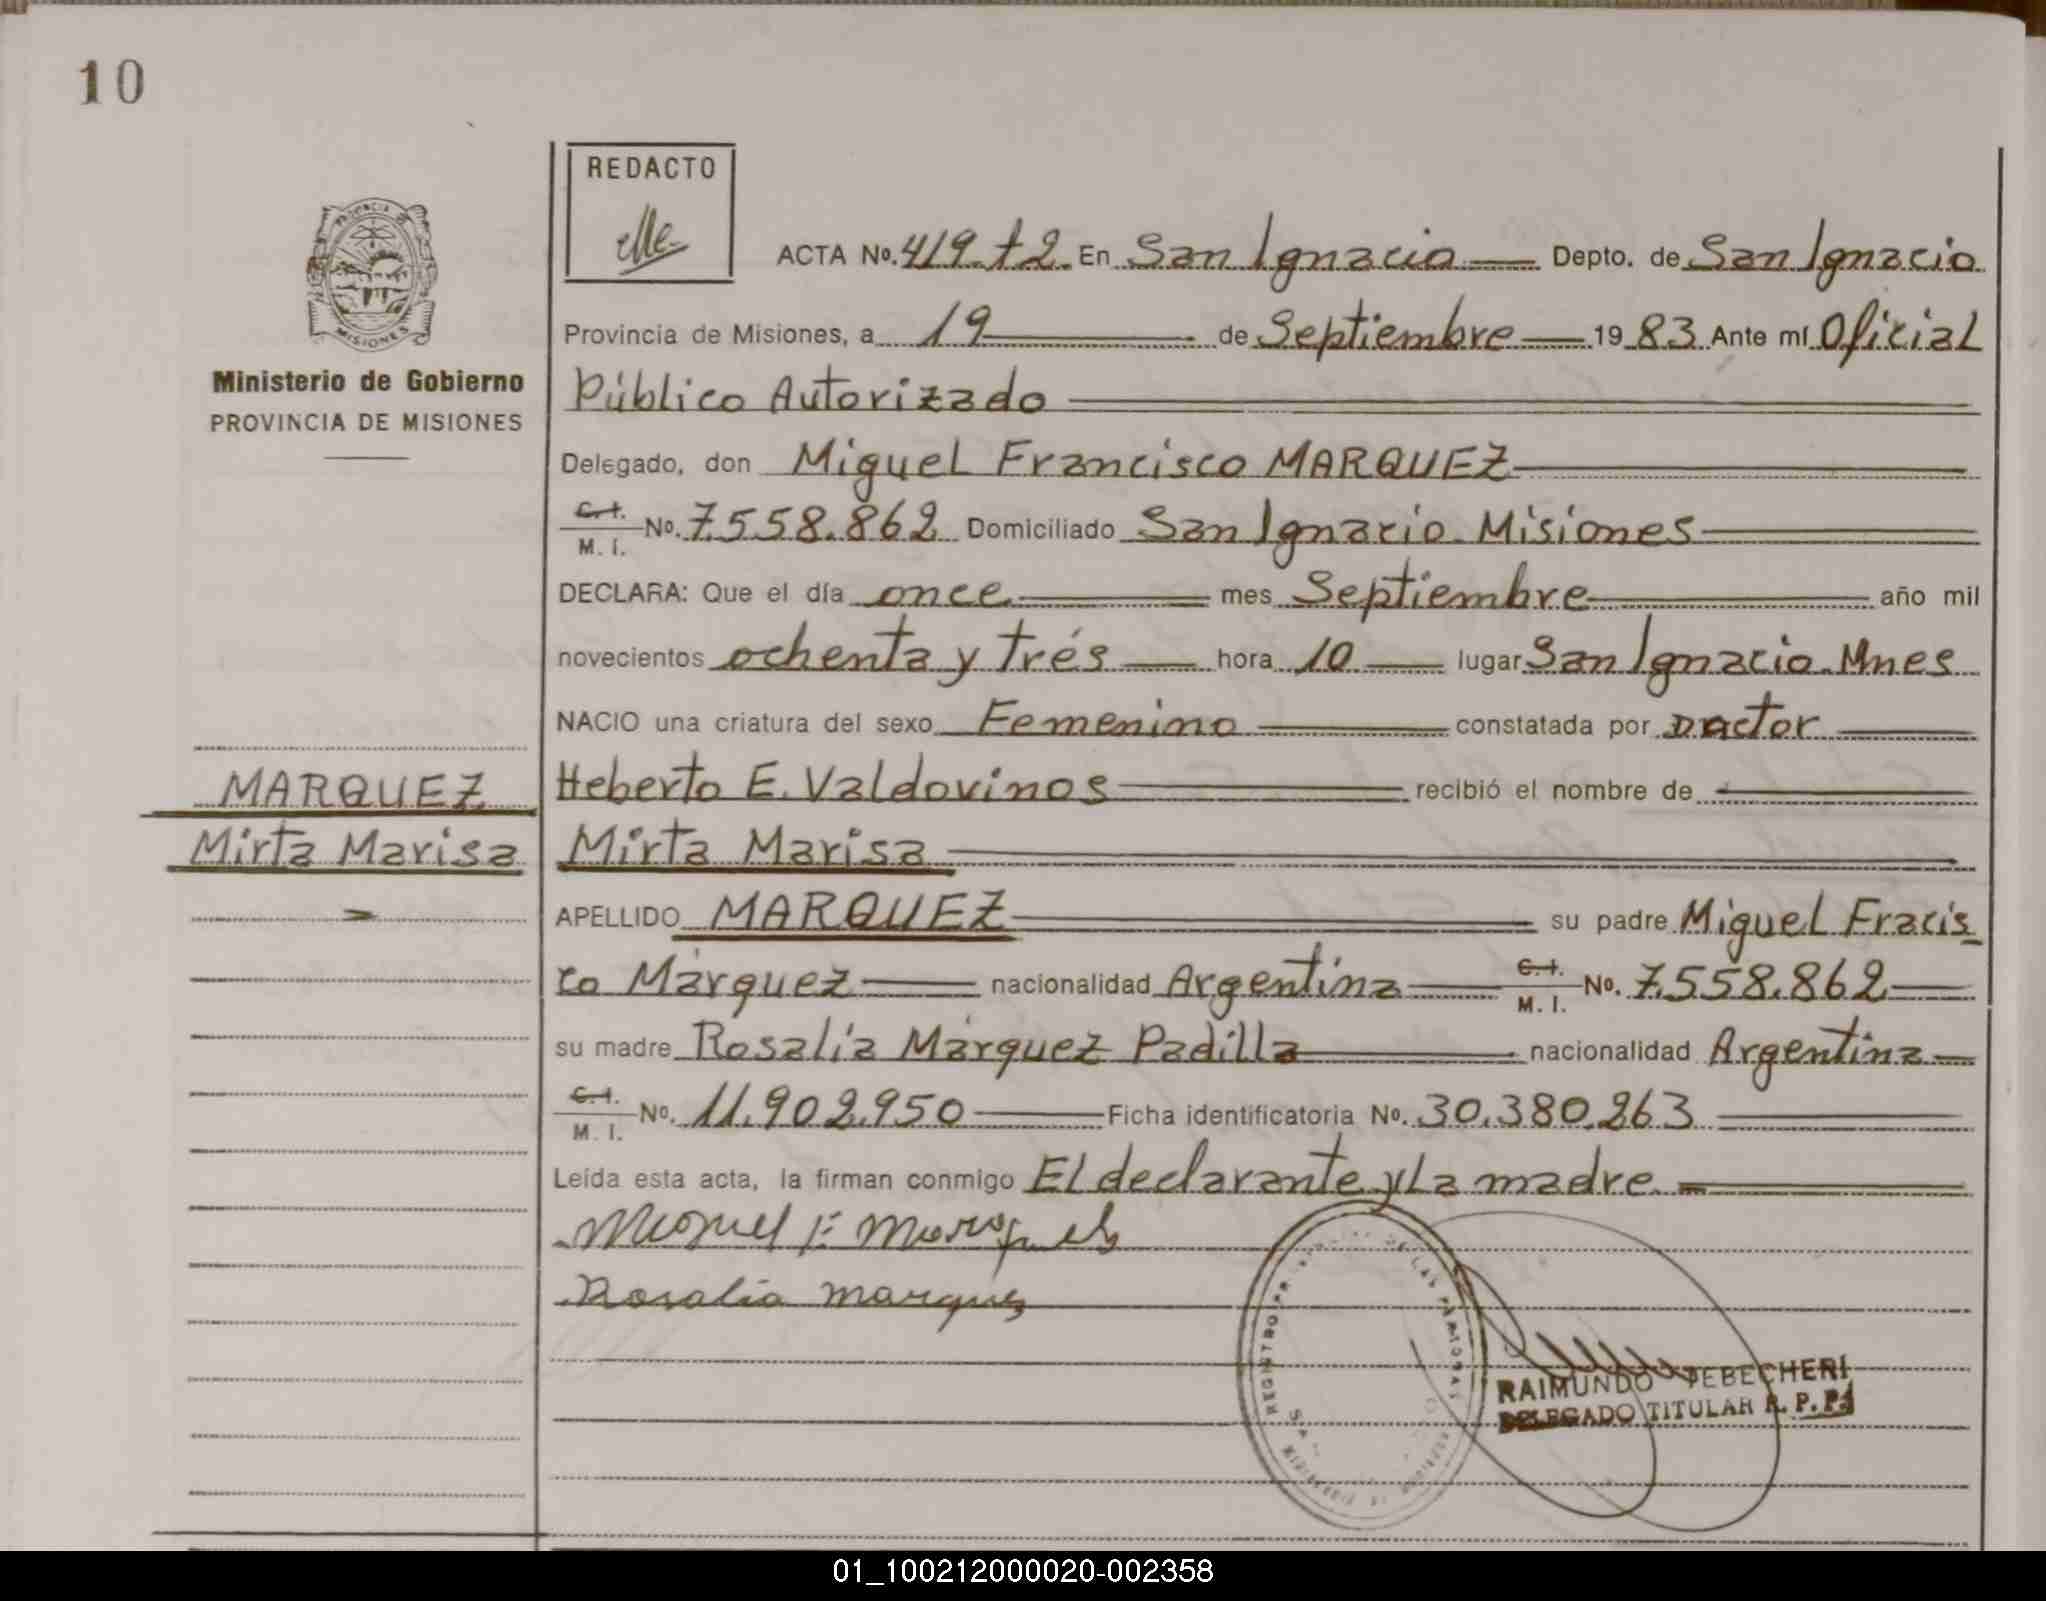 10
REDACTO
ACTA No. 419. t2. En San Ignacio Depto. de San Ignacio
Provincia de Misiones, a 19 de Septiembre 1983 Ante mí Oficial
Ministerio de Gobierno
PROVINCIA DE MISIONES
Público Autorizado
Delegado, don Miguel Francisco MARQUEZ
C.I. M. I. No. 7.558.862 Domiciliado San Ignacio Misiones
DECLARA: Que el día once mes Septiembre año mil
novecientos ochenta y trés hora 10 lugar San Ignacio. Mnes
NACIO una criatura del sexo Femenino constatada por Doctor
MARQUEZ
Heberto E. Valdovinos recibió el nombre de
Mirta Marisa
Mirta Marisa
APELLIDO MARQUEZ su padre Miguel Fracis
co Márquez nacionalidad Argentina C.I. M. I. No. 7.558.862
su madre Rosalia Márquez Padilla nacionalidad Argentina
C.I. M. I. No. 11.902.950 Ficha identificatoria No. 30.380.263
Leída esta acta, la firman conmigo El declarante y La madre
Miguel F. Marquez
Rosalia marquez
RAIMUNDO TEBECHERI
DELEGADO TITULAR R. P. P.
01_100212000020-002358